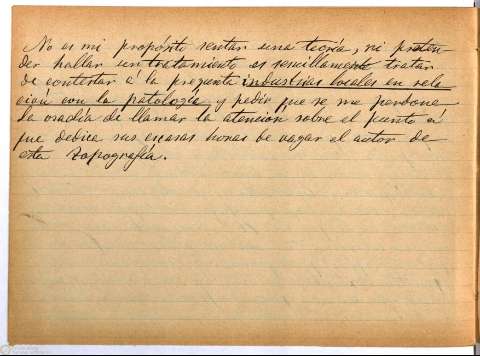 No es mi propósito sentar una teoría, ni preten-
der hallar un tratamiento es sencillamente tratar
de contestar á la pregunta industrias locales en rela
ción con la patología y pedir que se me perdone
la osadía de llamar la atención sobre el punto á
que dedica sus escasas horas de vagar el autor de
esta topografía.